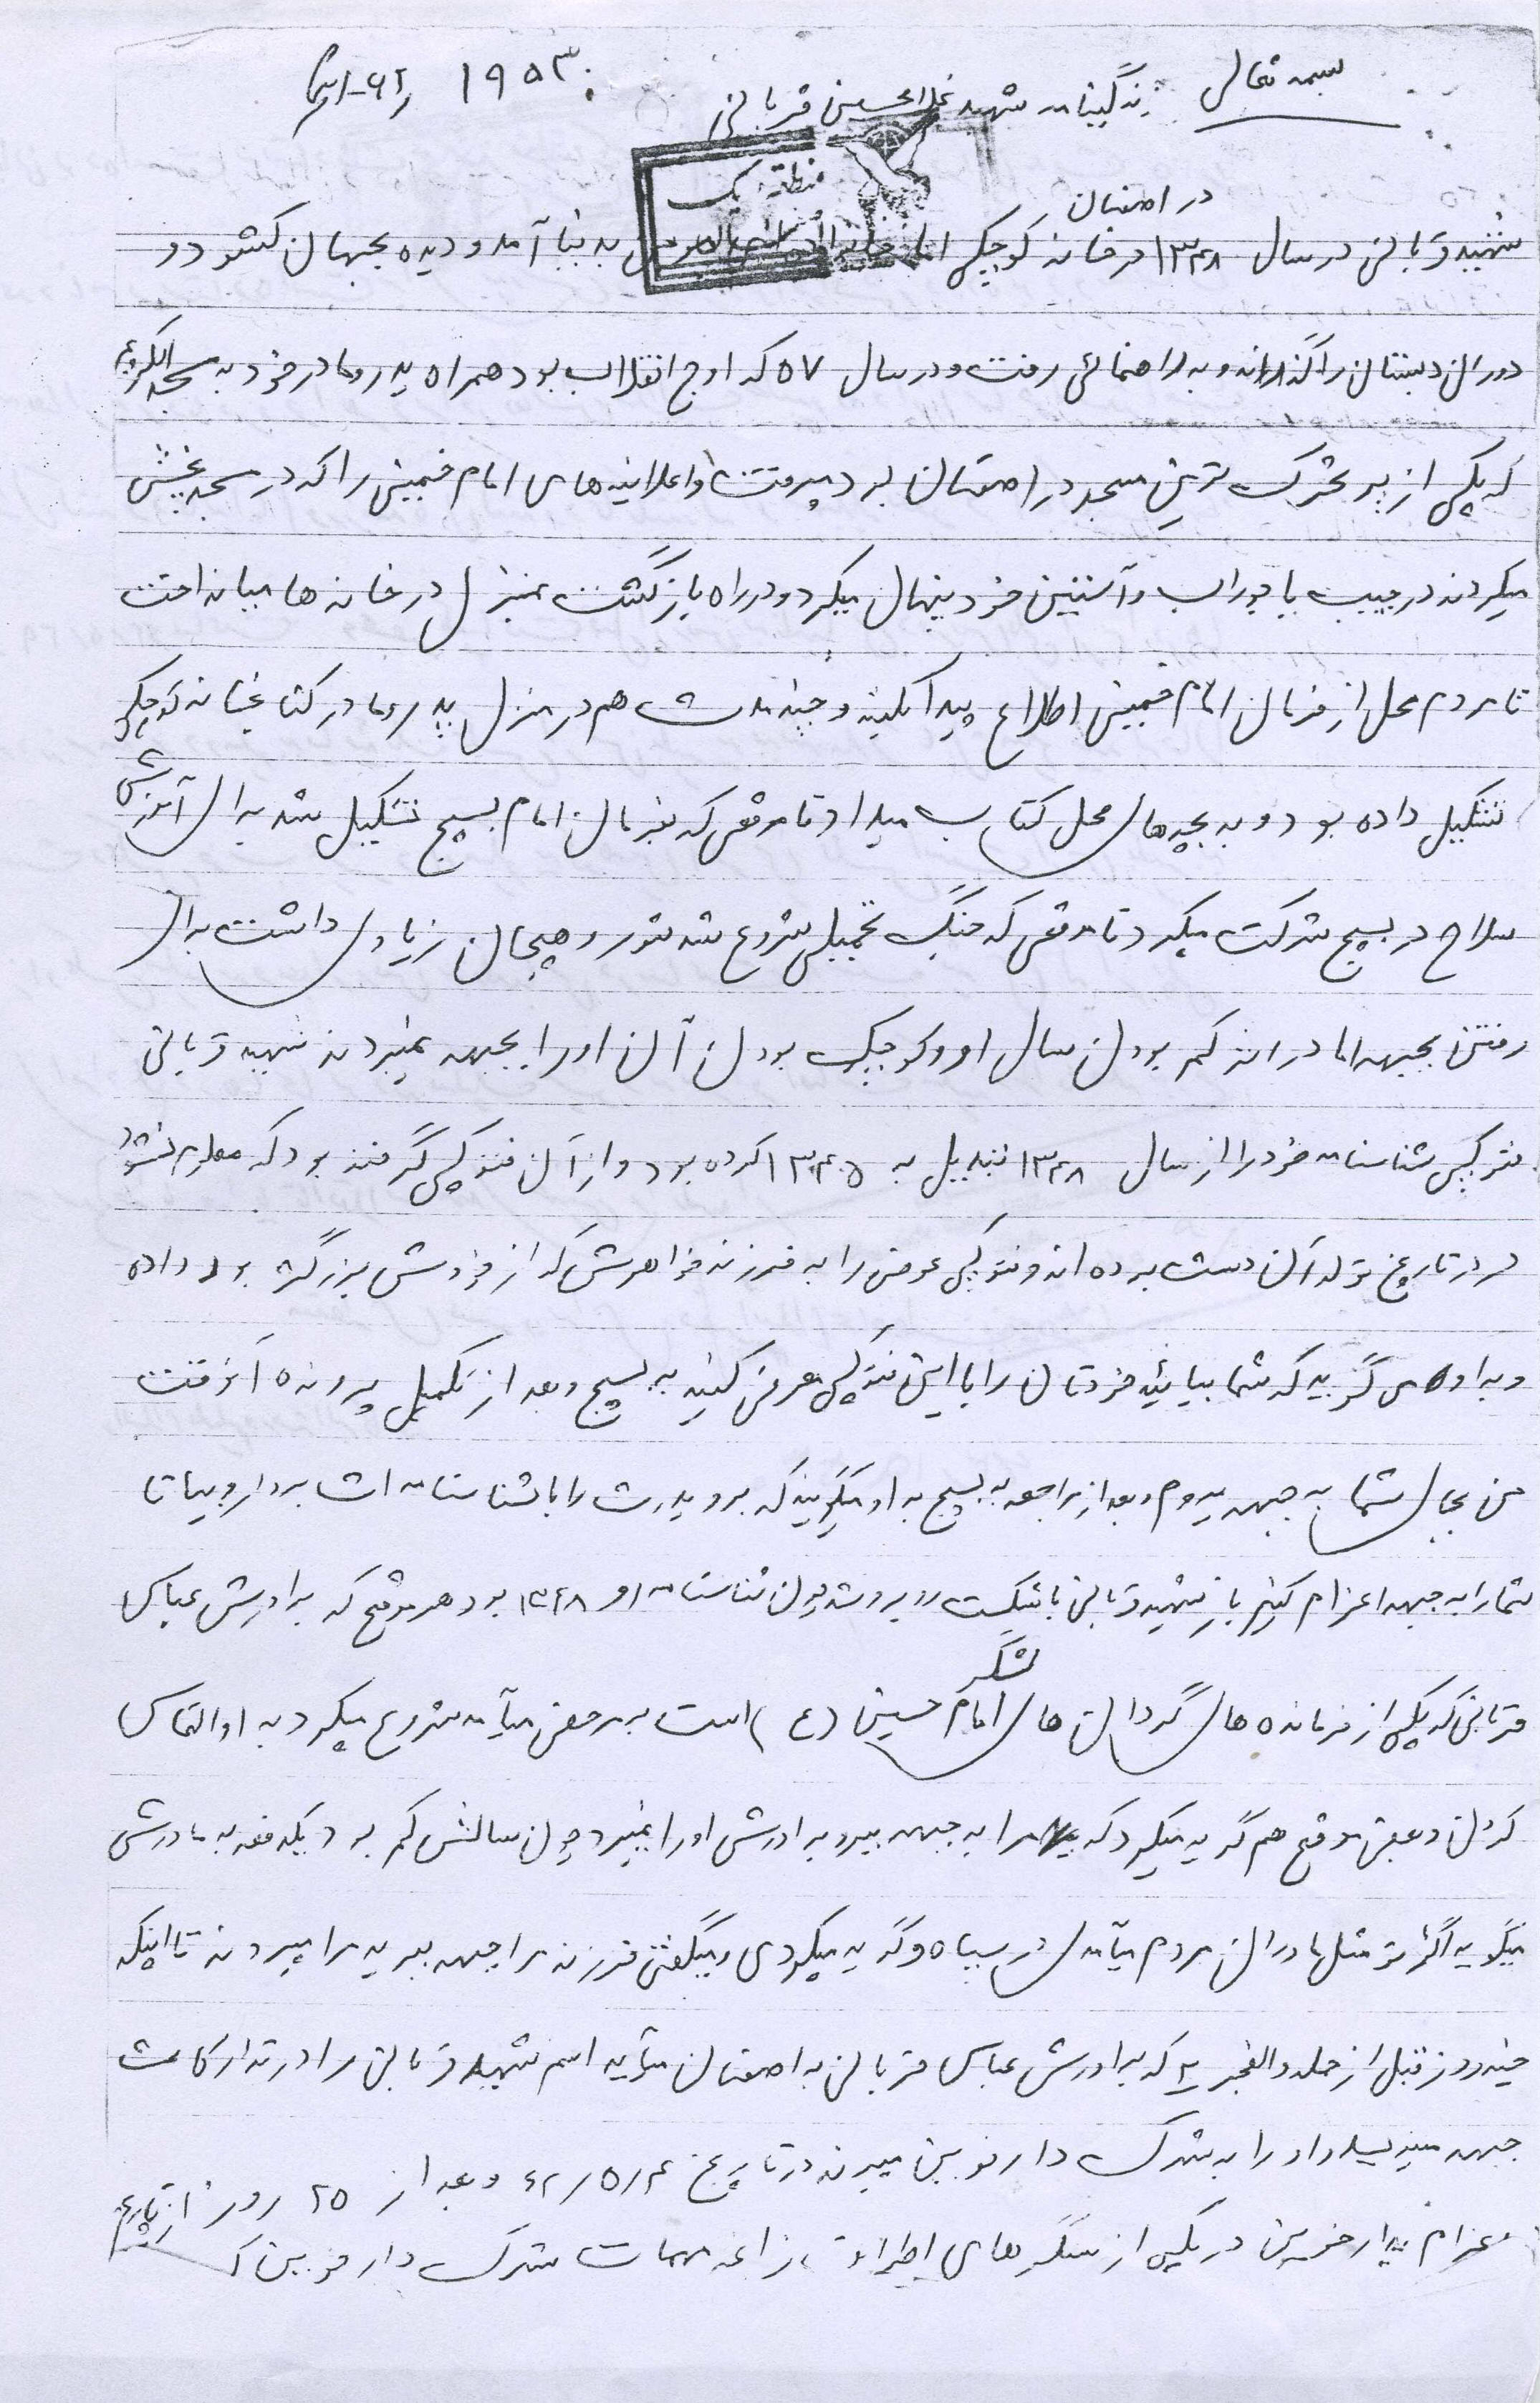 بسمه تعالی
زندگینامه شهید غلامحسین قربانی
۱۹۵۳۰
منطقه یک
در اصفهان
شهید قربانی در سال ۱۳۴۸ در خانه کوچکی بدنیا آمد و دیده بجهان گشود و
دوران دبستان را گذراند و به راهنمائی رفت و در سال ۵۷ که اوج انقلاب بود همراه پدر و مادر خود به مسجد
که یکی از پر تحرک ترین مسجد در اصفهان بود میرفت و اعلانیه های امام خمینی را که در مسجد پخش
میکردند در جیب یا جوراب و آستین خود پنهان میکرد و در راه بازگشت بمنزل در خانه ها میانداخت
تا مردم محل از فرمان امام خمینی اطلاع پیدا کنند و چند مدت هم در منزل پدر و مادر کتابخانه کوچکی
تشکیل داده بود و به بچه های محل کتاب میداد تا موقعی که بفرمان امام بسیج تشکیل شد برای آموزش
سلاح در بسیج شرکت میکرد تا موقعی که جنگ تحمیلی شروع شد شور و هیجان زیادی داشت برای
رفتن بجبهه اما در اثر کم بودن سال او و کوچک بودن آن او را بجبهه نمیبردند شهید قربانی
فتوکپی شناسنامه خود را از سال ۱۳۴۸ تبدیل به ۱۳۴۵ کرده بود و از آن فتوکپی گرفته بود که معلوم نشود
در تاریخ تولد آن دست برده اند و فتوکپی عوضی را به فرزند خواهرش که از خودش بزرگتر بود داده
و به او می گوید که شما بیائید خودتان را با این فتوکپی معرفی کنید به بسیج و بعد از تکمیل پرونده آنوقت
من بجای شما به جبهه میروم و بعد از مراجعه به بسیج به او میگویند که برو پدرت را با شناسنامه ات بردار و بیا تا
شما را به جبهه اعزام کنیم باز شهید قربانی با شکست روبرو شد چون شناسنامه او ۱۳۴۸ بود هر موقع که برادرش عباس
قربانی که یکی از فرمانده های گردان های لشگر امام حسین (ع) است به مرخصی میآمد شروع میکرد به او التماس
کردن و بعضی موقع هم گریه میکرد که مرا به جبهه ببر و برادرش او را نمیبرد چون سالش کم بود یکدفعه به مادرش
میگوید اگر تو مثل مادران مردم میآمدی در سپاه و گریه میکردی و میگفتی فرزند مرا جبهه ببرید مرا میبردند تا اینکه
چند روز قبل از حمله والفجر ۲ که برادرش عباس قربانی به اصفهان میآید اسم شهید قربانی را در تدارکات
جبهه مینویسد و او را به شهرک دارخوین میبرند در تاریخ ۶۲/۵/۴ و بعد از ۲۵ روز از تاریخ
اعزام به دارخوین در یکی از سنگرهای اطراف زاغه مهمات شهرک دارخوین